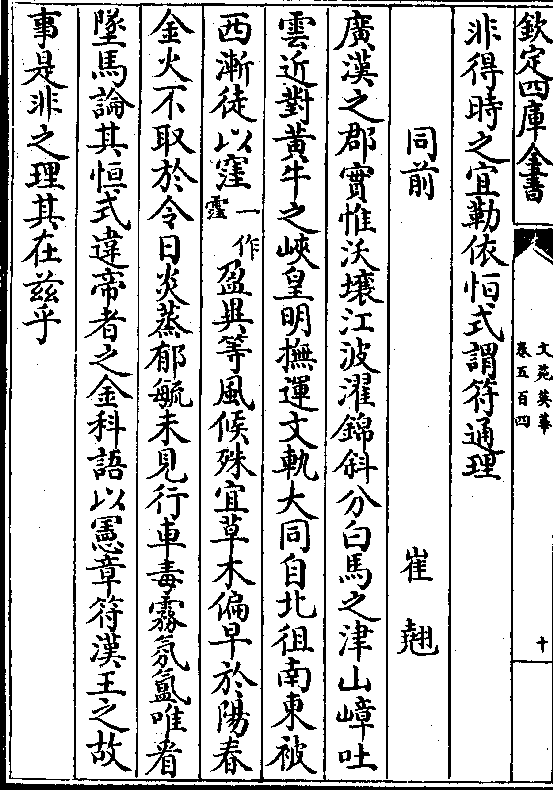 欽定四庫全書
文苑英華
卷五百四
十
非得時之宜勒依恒式謂符通理
同前
崔翹
廣漢之郡實惟沃壤江波濯錦斜分白馬之津山嶂吐
雲近對黃牛之峽皇明撫運文軌大同自北徂南東被
西漸徒以窪一作𩆜盈異等風候殊宜草木偏早於陽春
金火不取於令日炎蒸郁毓未見行車毒霧氛氲唯看
墜馬論其恒式違帝者之金科語以憲章符漢王之故
事是非之理其在兹乎